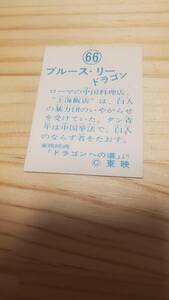 66
ブルース・リー
ドラゴン
ローマの中国料理店、
"上海飯店"は、白人
の暴力団のいやがらせ
を受けていた。タン青
年は中国拳法で、白人
のならず者をたおす。
東映映画
「ドラゴンへの道」より
© 東映